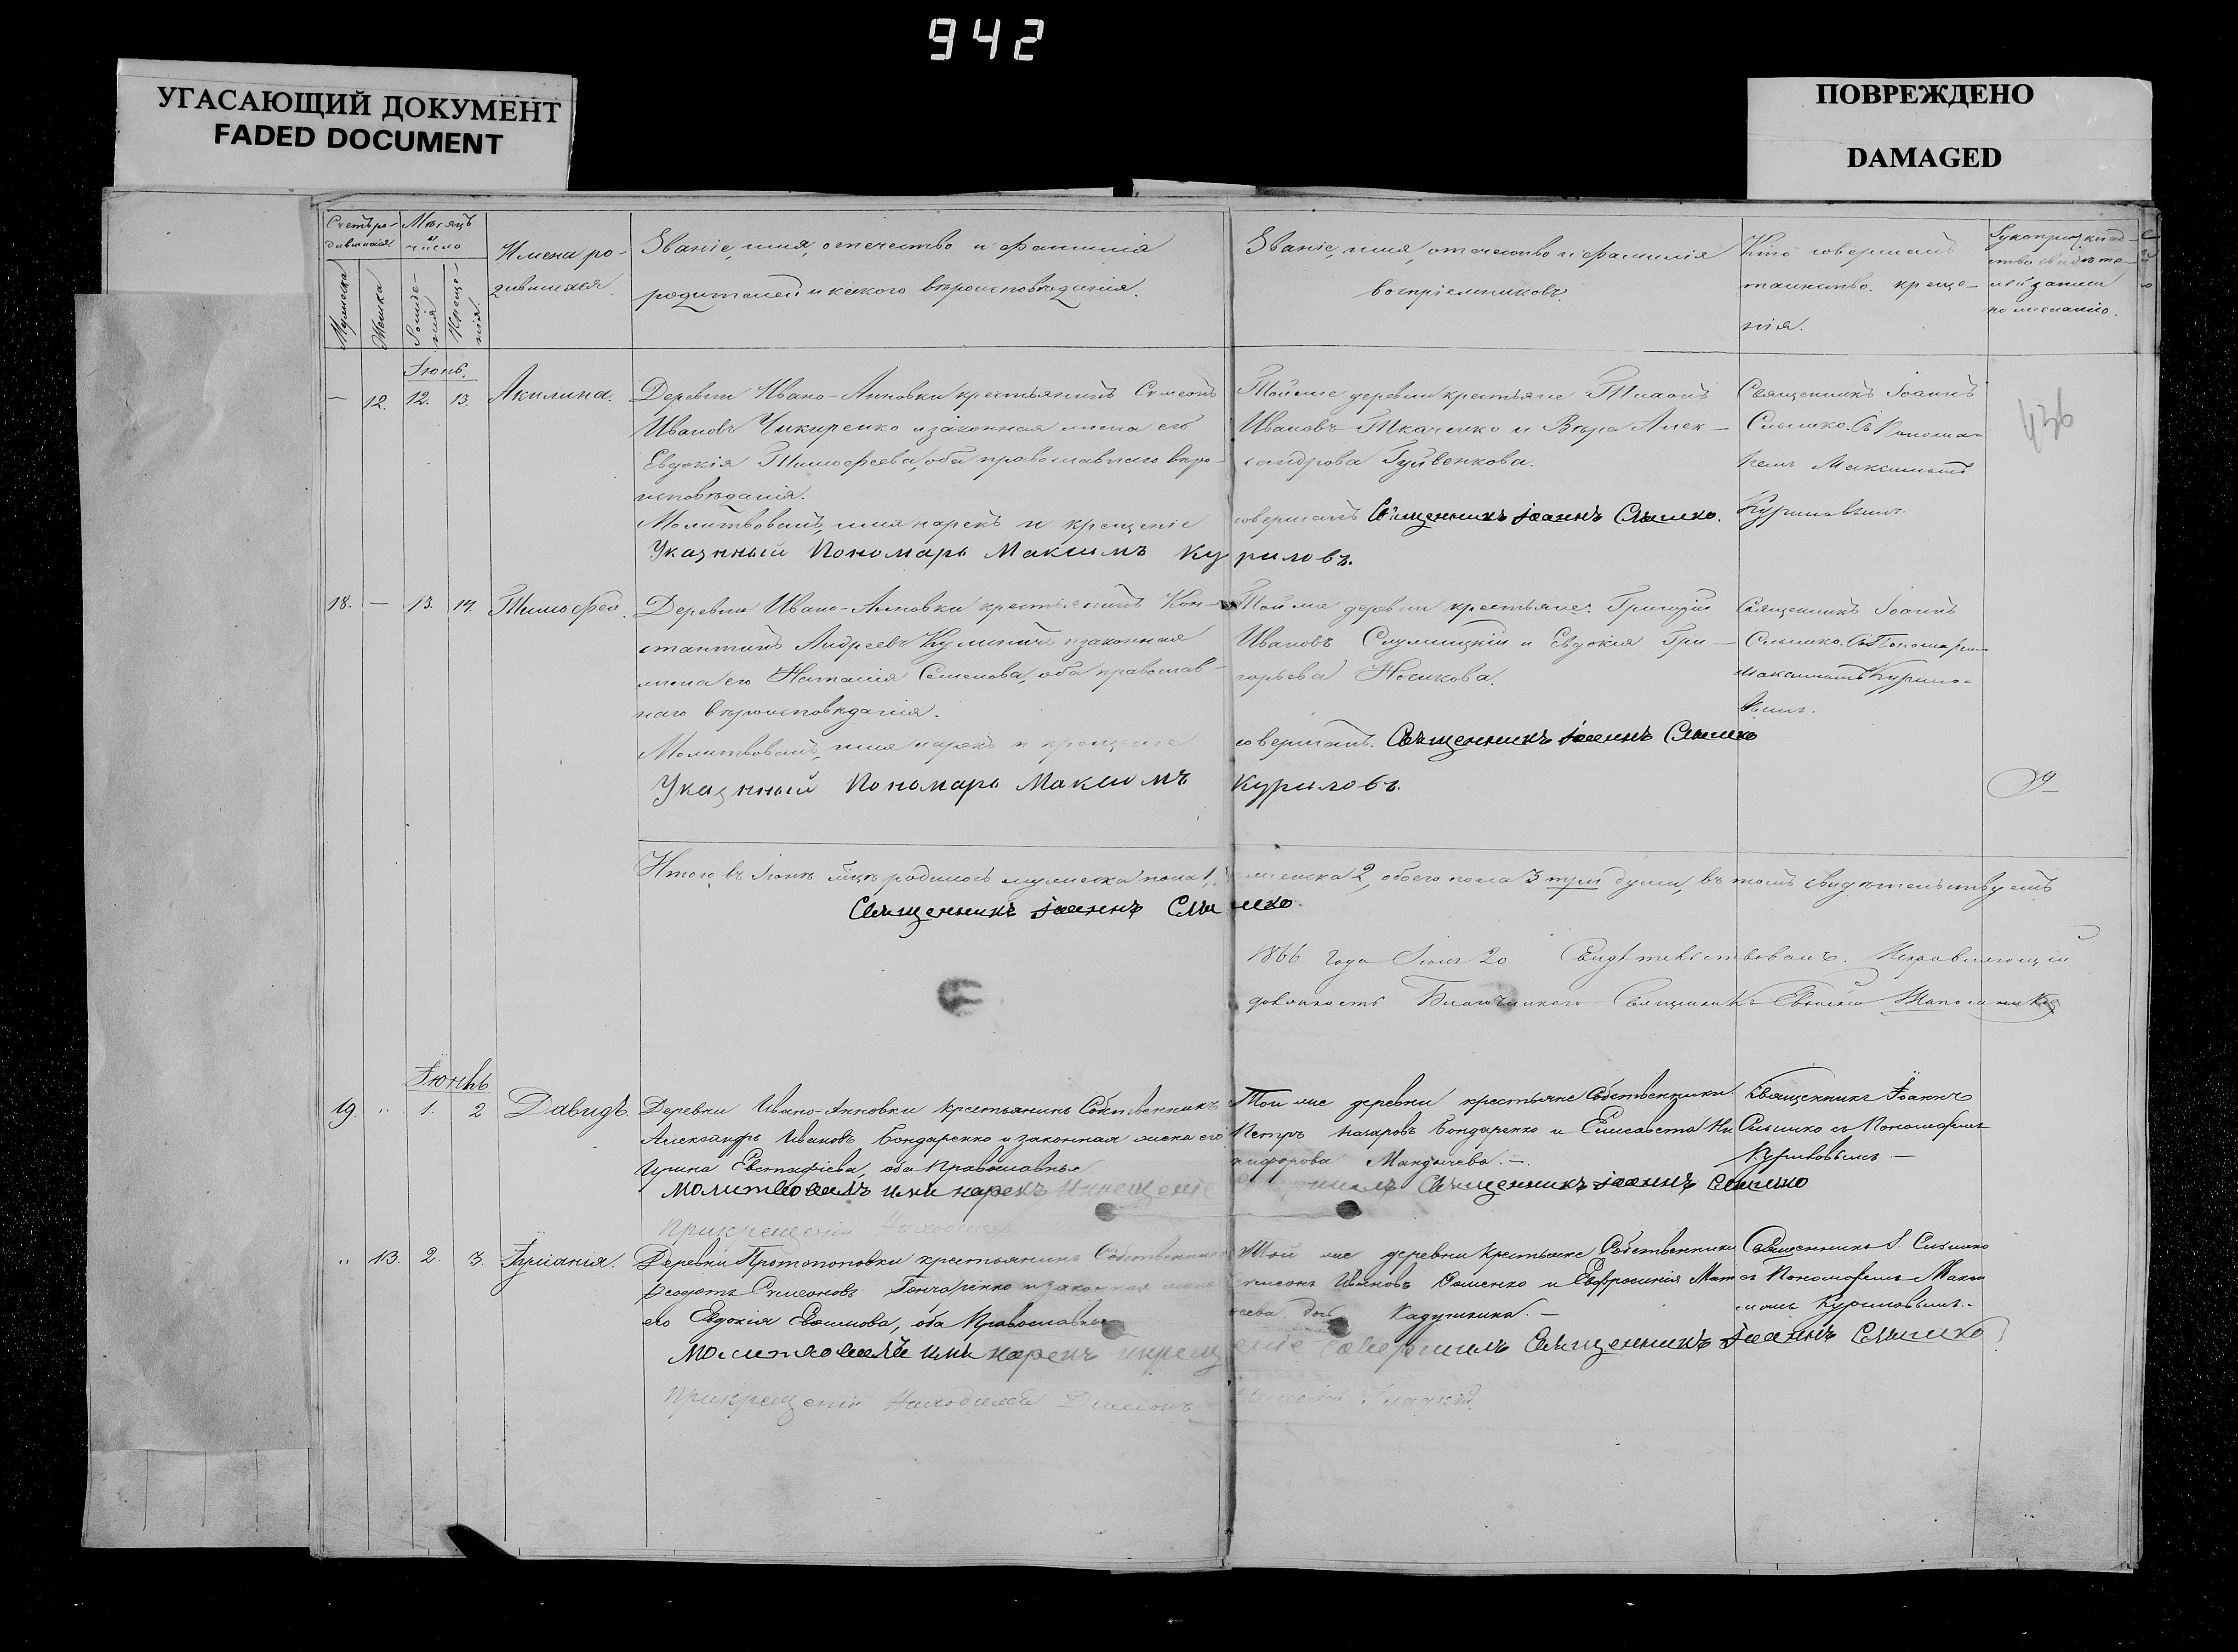 942
УГАСАЮЩИЙ ДОКУМЕНТ
FADED DOCUMENT
ПОВРЕЖДЕНО
DAMAGED
Счетъ ро-
дившихся.
Мѣсяцъ
и
число
Мужеска
Женска
Рожде-
нія
Креще-
нія.
Имена ро-
дившихся.
Званіе, имя, отечество и фамилія
родителей и какого вѣроисповѣданія.
Званіе, имя, отечество и фамилія
воспріемниковъ.
Кто совершалъ
таинство креще-
нія.
Рукоприкладство свидѣте-
лей записи
по желанію.
Іюнь.
— 12. 12. 13. Акилина.
Деревни Ивано-Анновки крестьянинъ Сѵмеонъ
Ивановъ Чикиренко и законная жена его
Евдокія Тимофеева, оба православнаго вѣро-
исповѣданія.
Молитвовалъ, имя нарекъ и крещеніе
Тойже деревни крестьяне
Ивановъ Ткаченко и Вѣра Алек-
сандрова Гуйвенкова.
совершалъ Священникъ Іоаннъ Слышко.
Указнный Пономарь Максимъ Куриловъ.
Священникъ Іоаннъ
Слышко. Съ Понома-
ремъ Максимомъ
Куриловымъ.
436
18. — 13. 14. Тимофей.
Деревни Ивано-Анновки крестьянинъ Кон-
стантинъ Андреевъ Кулиничъ и законная
жена его Наталія Семенова, оба православ-
наго вѣроисповѣданія.
Молитвовалъ, имя нарекъ и крещеніе
Той же деревни крестьяне: Григорій
Ивановъ и Евдокія Гри-
горьева Носикова.
совершалъ. Священникъ Іоаннъ Слышко
Указнный Пономарь Максимъ Куриловъ.
Священникъ Іоаннъ
Слышко. Съ Пономаремъ
Максимомъ Курило-
вымъ.
Итого въ Іюнѣ мцѣ родилось мужеска пола 1, женска 2, обоего пола 3 три души, въ томъ свидѣтельствуетъ
Священникъ Іоаннъ Слышко.
1866 года 20 Свидѣтельствовалъ. Исправляющій
должность Благочиннаго Священникъ
Іюнь
19. „ 1. 2 Давидъ.
Деревни Ивано-Анновки крестьянинъ Собственникъ
Александръ Ивановъ Бондаренко и законная жена его
Ирина Евстафіева, оба Православные
Молитвовалъ имя нарекъ и крещеніе
При крещеніи
Той же деревни крестьяне Собственники:
Петръ Назаровъ Бондаренко и Елисавета Ни-
кифорова
совершилъ Священникъ Іоаннъ Слышко
Священникъ Іоаннъ
Слышко съ Пономаремъ
Куриловымъ —
„ 13. 2. 3. Іуліанія.
Деревни Протопоповки крестьянинъ Собственникъ
Ѳеодотъ Сѵмеоновъ Гончаренко и законная жена
его Евдокія Евѳимова, оба Православные
Молитвовалъ имя нарекъ и крещеніе совершилъ Священникъ Іоаннъ Слышко
При крещеніи находился
Той же деревни крестьяне Собственники
Сѵмеонъ Ивановъ и Евфросинія Мат-
Священникъ І. Слышко
съ Пономаремъ Макси-
момъ Куриловымъ.